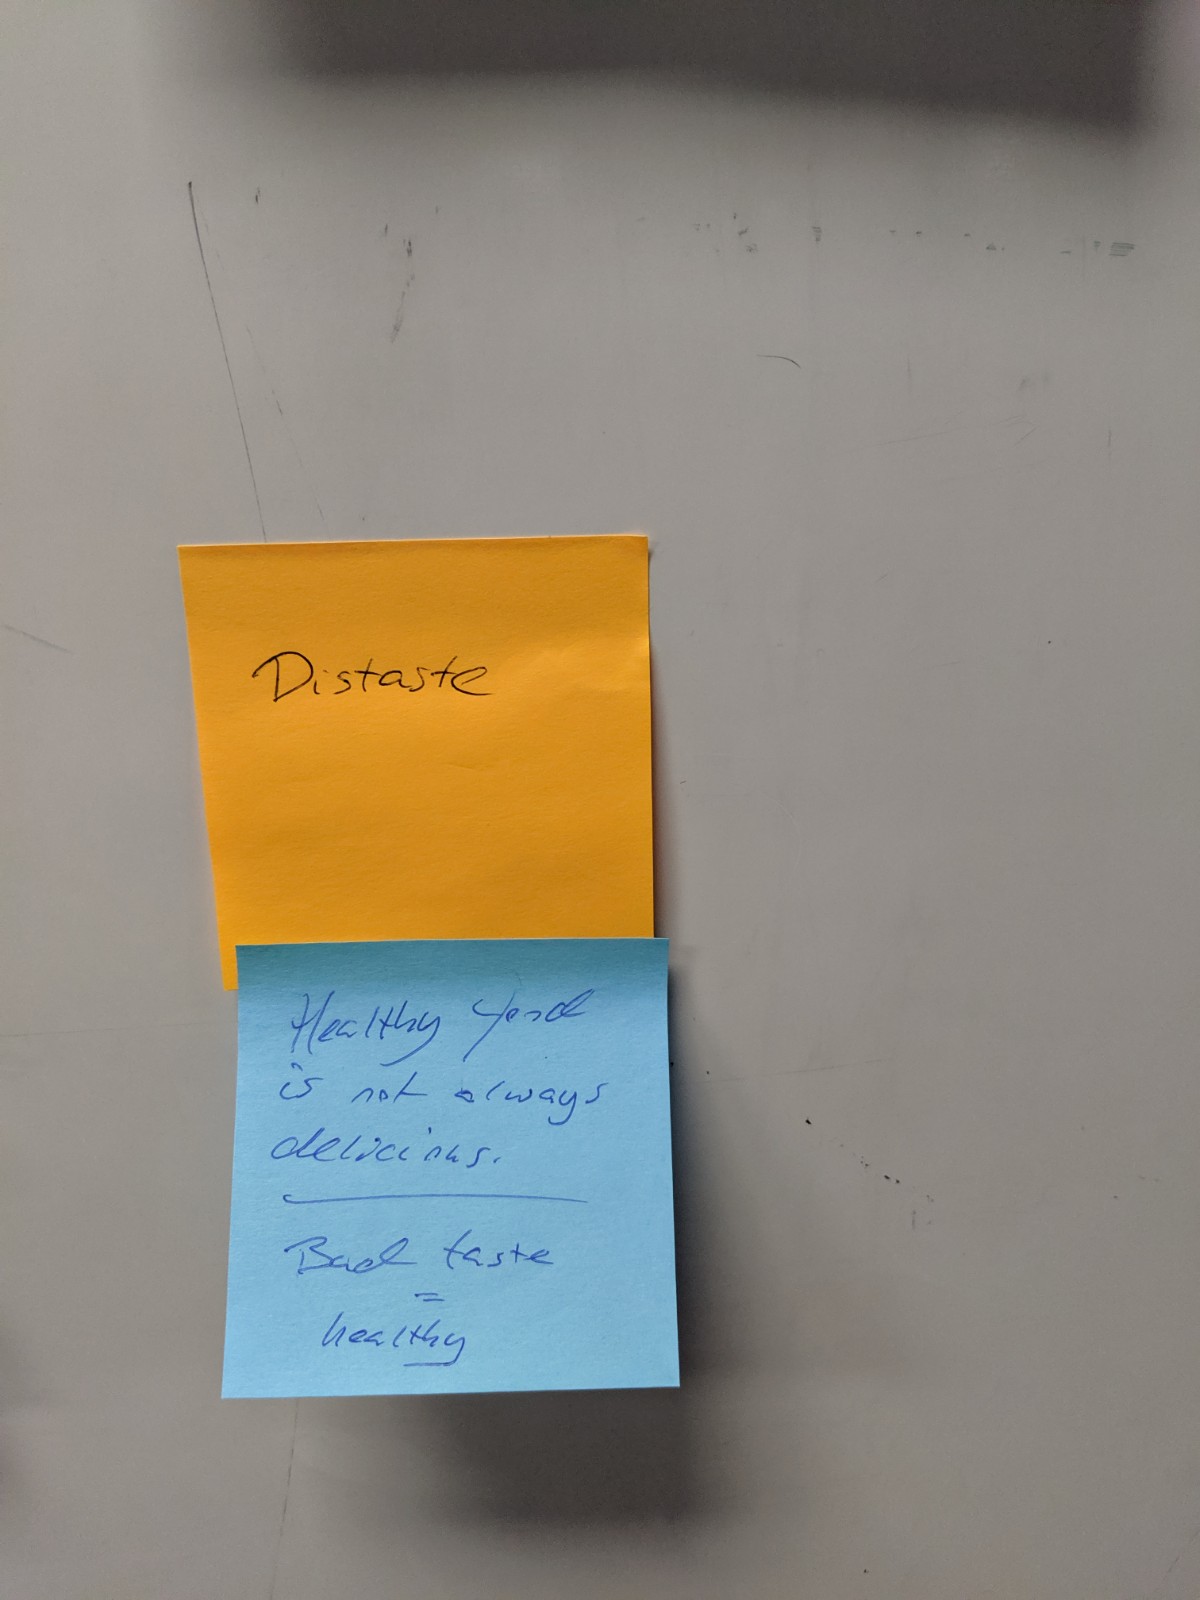 Distaste
Healthy food
is not always
delicious.
Bad taste
=
healthy